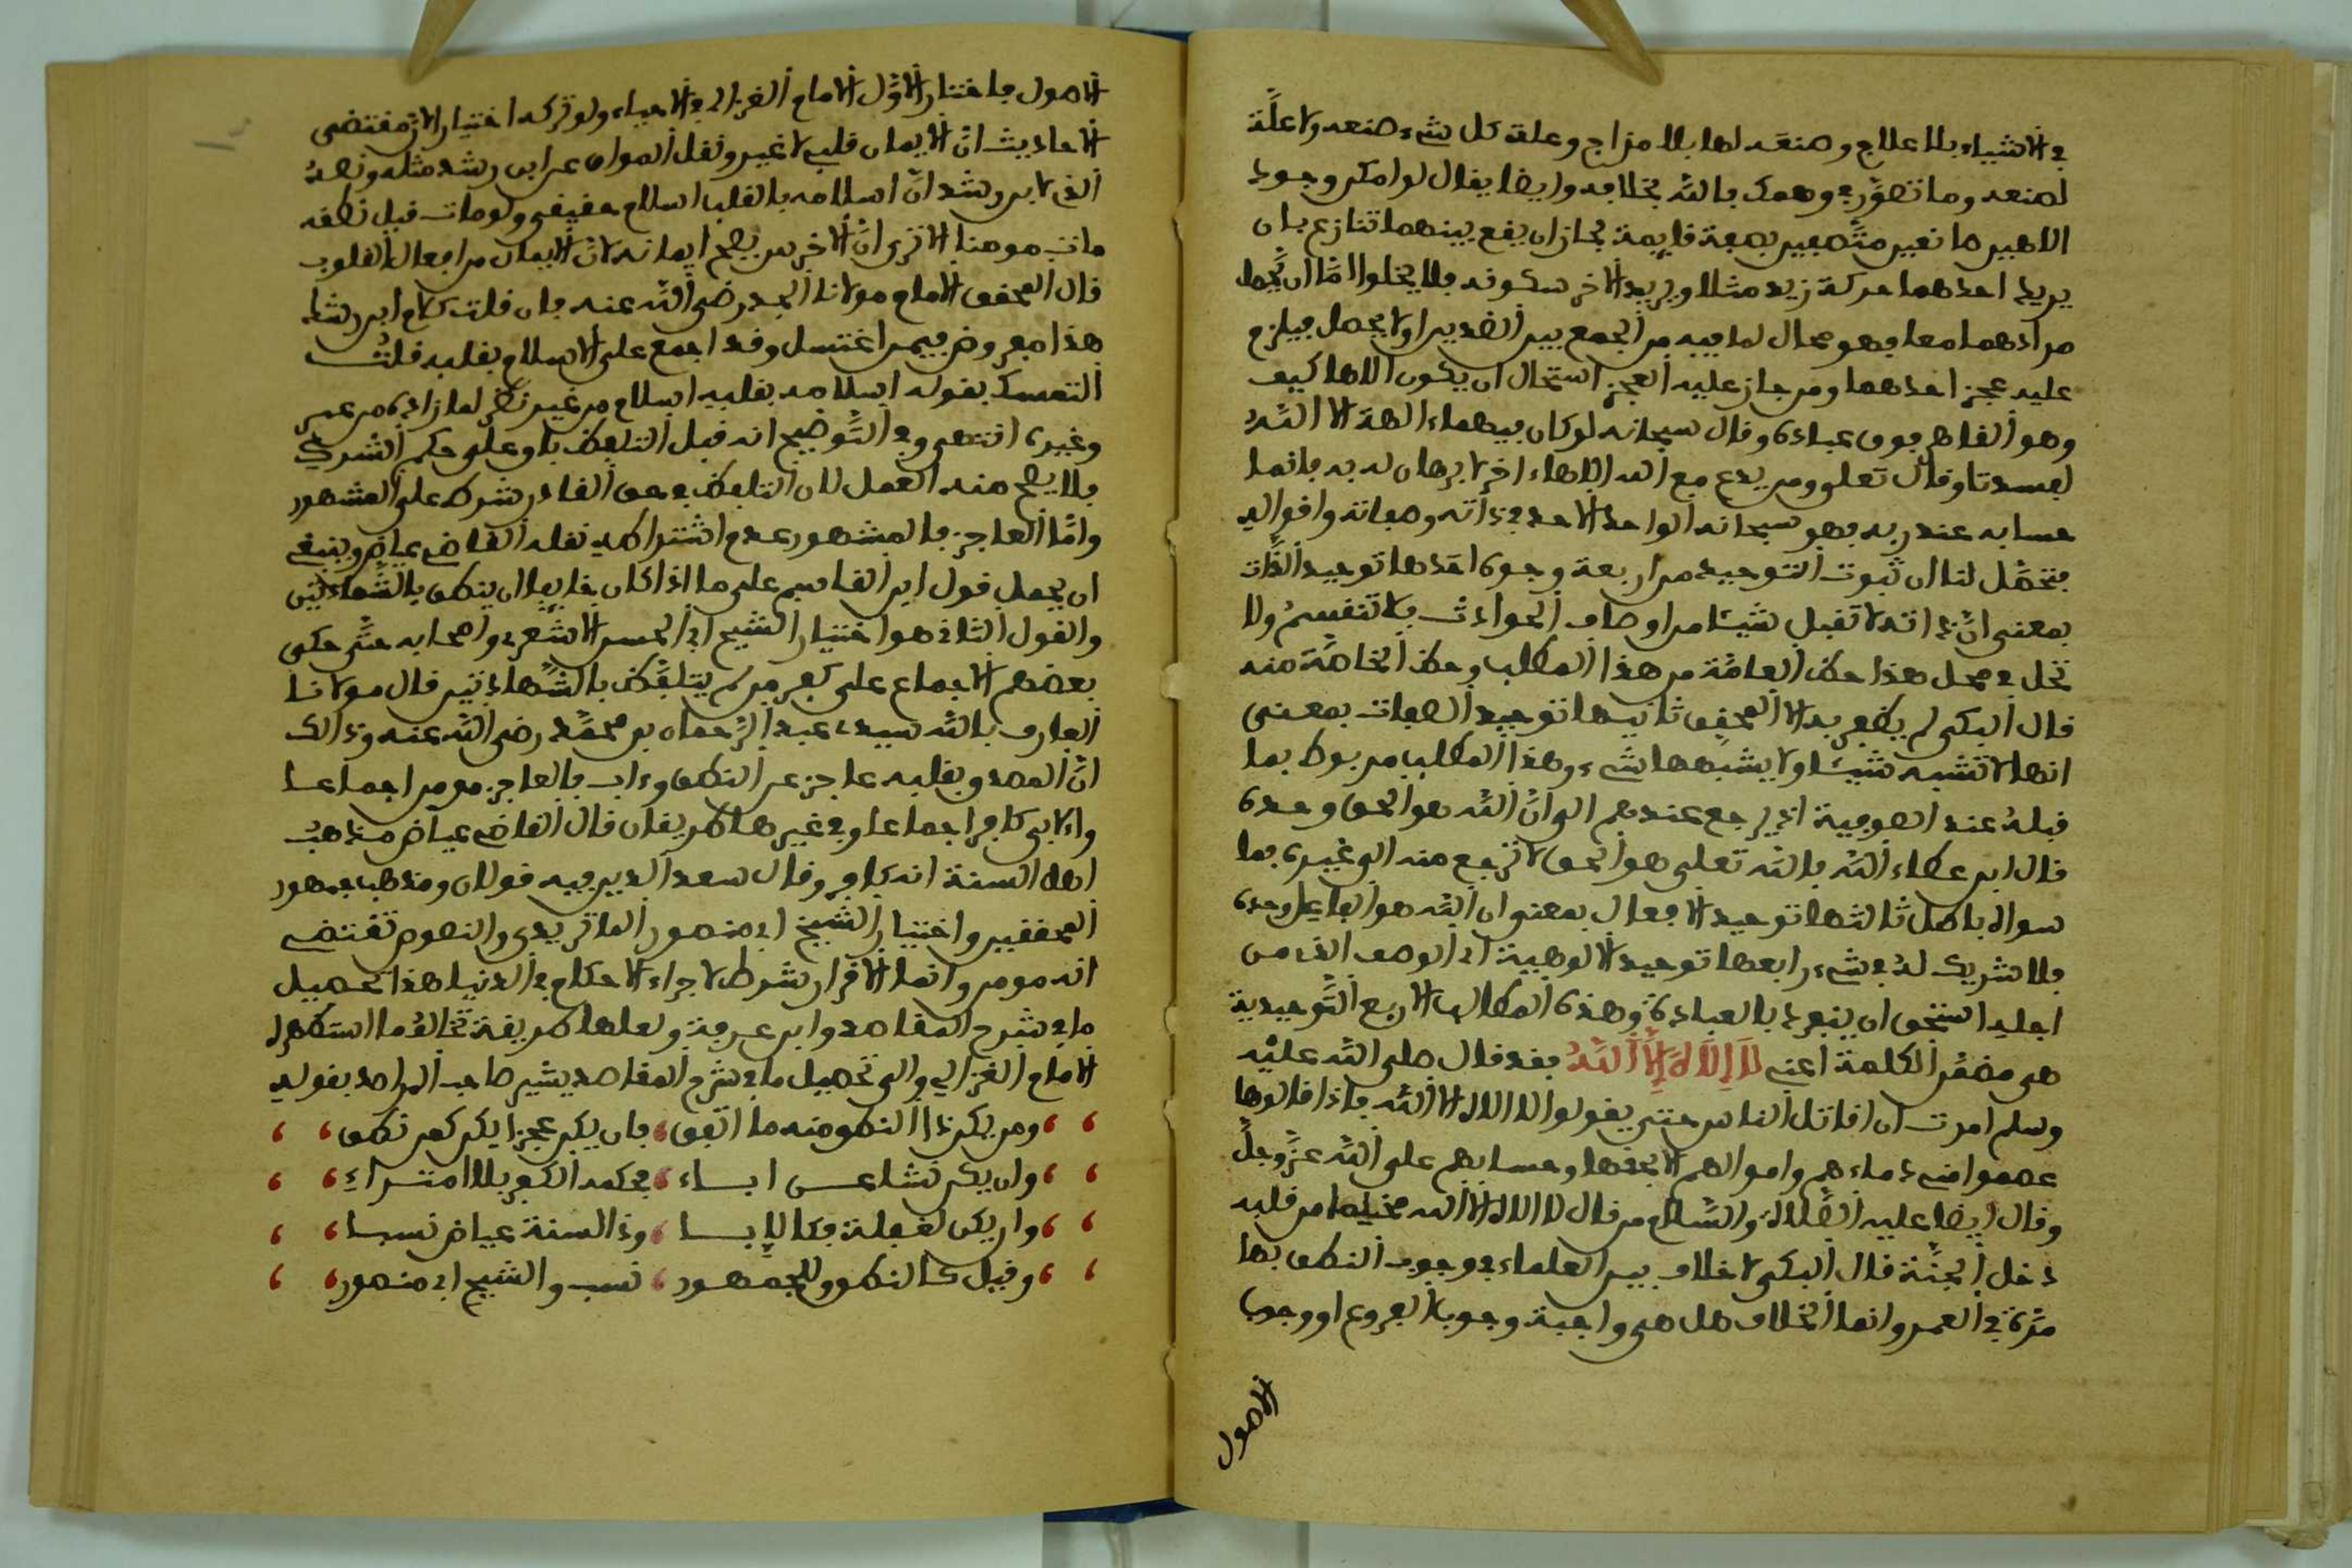 في الاشياء بلا علاج وصنعه لها بلا مزاج وعلة كل شيء صنعه ولا علة
لصنعه وما تصور في وهمك بالله بخلافه وايضا يقال لو امكن وجود
الاهين صانعين متصفين بصفة قديمة لجاز ان يقع بينهما تنازع بان
يريد احدهما حركة زيد مثلا ويريد الاخر سكونه فلا يخلوا اما ان يحصل
مرادهما معا وهو محال لما فيه من الجمع بين الضدين او لا يحصل فيلزم
عليه عجز احدهما ومن جاز عليه العجز استحال ان يكون الاها كيف
وهو القاهر فوق عباده وقال سبحانه لو كان فيهما ءالهة الا الله
لفسدتا وقال تعلى ومن يدع مع الله الاها ءاخر لا برهان له به فانما
حسابه عند ربه فهو سبحانه الواحد الاحد في ذاته وصفاته وافعاله
فتحصل لنا ان ثبوت التوحيد من اربعة وجوه احدها توحيد الذات
بمعنى ان ذاته لا تقبل شيئا من اوصاف الحوادث فلا تنقسم ولا
تحل في محل هذا حظ العامة من هذا المطلب وحظ الخاصة منه
قال البكي لم يظفر به الا المحقق ثانيها توحيد الصفات بمعنى
انها لا تشبه شيئا ولا يشبهها شيء وهذا المطلب مربوط بما
قبله عند الصوفية اذ يرجع عندهم الى ان الله هو الحق وحده
قال ابن عطاء الله بالله تعلى هو الحق لا ترجع منه الى غيره بما
سواه باطل ثالثها توحيد الافعال بمعنى ان الله هو الفاعل وحده
فلا شريك له في شيء رابعها توحيد الالوهية اي الوصف الذي من
اجله استحق ان ينفرد بالعبادة وهذه المطالب الاربع التوحيدية
هي مضمن الكلمة اعني لا إلاه إلا الله فقد قال صلى الله عليه
وسلم امرت ان اقاتل الناس حتى يقولوا لا الاه الا الله فاذا قالوها
عصموا مني دماءهم واموالهم الا بحقها وحسابهم على الله عز وجل
وقال ايضا عليه الصلاة والسلام من قال لا الاه الا الله مخلصا من قلبه
دخل الجنة قال البكي لا خلاف بين العلماء في وجوب النطق بها
مرة في العمر وانما الخلاف هل هي واجبة وجوب الفروع او وجوب
الاصول
الاصول فاختار الاول الامام الغزالي في الاحياء ولو تركه اختيارا لان مقتضى
الاحاديث ان الايمان قلبي لا غير ونقل المواق عن ابن رشد مثله ونصه
الذي لابن رشد ان اسلامه بالقلب اسلام حقيقي ولو مات قبل نطقه
مات مومنا الا ترى ان الاخرس يصح ايمانه لان الايمان من افعال القلوب
قال المحقق الامام مولانا الجد رضي الله عنه فان قلت كلام ابن رشد
هذا مفروض فيمن اغتسل وقد اجمع على الاسلام بقلبه قلت
التمسك بقوله اسلامه بقلبه اسلام من غير نظر لما زاده من عمر
وغيره انتهى وفي التوضيح انه قبل التلفظ باق على حكم الشرك
فلا يصح منه العمل لان التلفظ في حق القادر شرط على المشهور
واما العاجز فالمشهور عدم اشتراطه نقله القاضي عياض وينبغي
ان يحمل قول ابن القاسم على ما اذا كان خايفا ان ينطق بالشهادتين
والقول الثاني هو اختيار الشيخ ابي الحسن الاشعري واصحابه حتى حكى
بعضهم الاجماع على كفر من لم يتلفظ بالشهادتين قال مولانا
العارف بالله سيدي عبد الرحمان بن محمد رضي الله عنه وذالك
ان المصدق بقلبه عاجز عن النطق وءاب فالعاجز مومن اجماعا
والابي كافر اجماعا وفي غيرهما طريقان قال القاضي عياض مذهب
اهل السنة انه كافر وقال سعد الدين فيه قولان ومذهب جمهور
المحققين واختيار الشيخ ابي منصور الماتريدي والنصوص تقتضي
انه مومن وانما الاقرار شرط لاجراء الاحكام في الدنيا هذا تحصيل
ما في شرح المقاصد وابن عرفة ولعلها طريقة تخالف ما استظهر
الامام الغزالي والى تحصيل ما في شرح المقاصد يشير صاحب المراصد بقوله
ومن يكن ذا النطق منه ما اتفق فان يكن عجزا يكن كمن نطق
وان يكن نشا عن اباء فحكمه الكفر بلا امتراء
وان يكن لغفلة فكالابا وذا السنة عياض نسبا
وقيل كالنطق وللجمهور نسب والشيخ ابي منصور